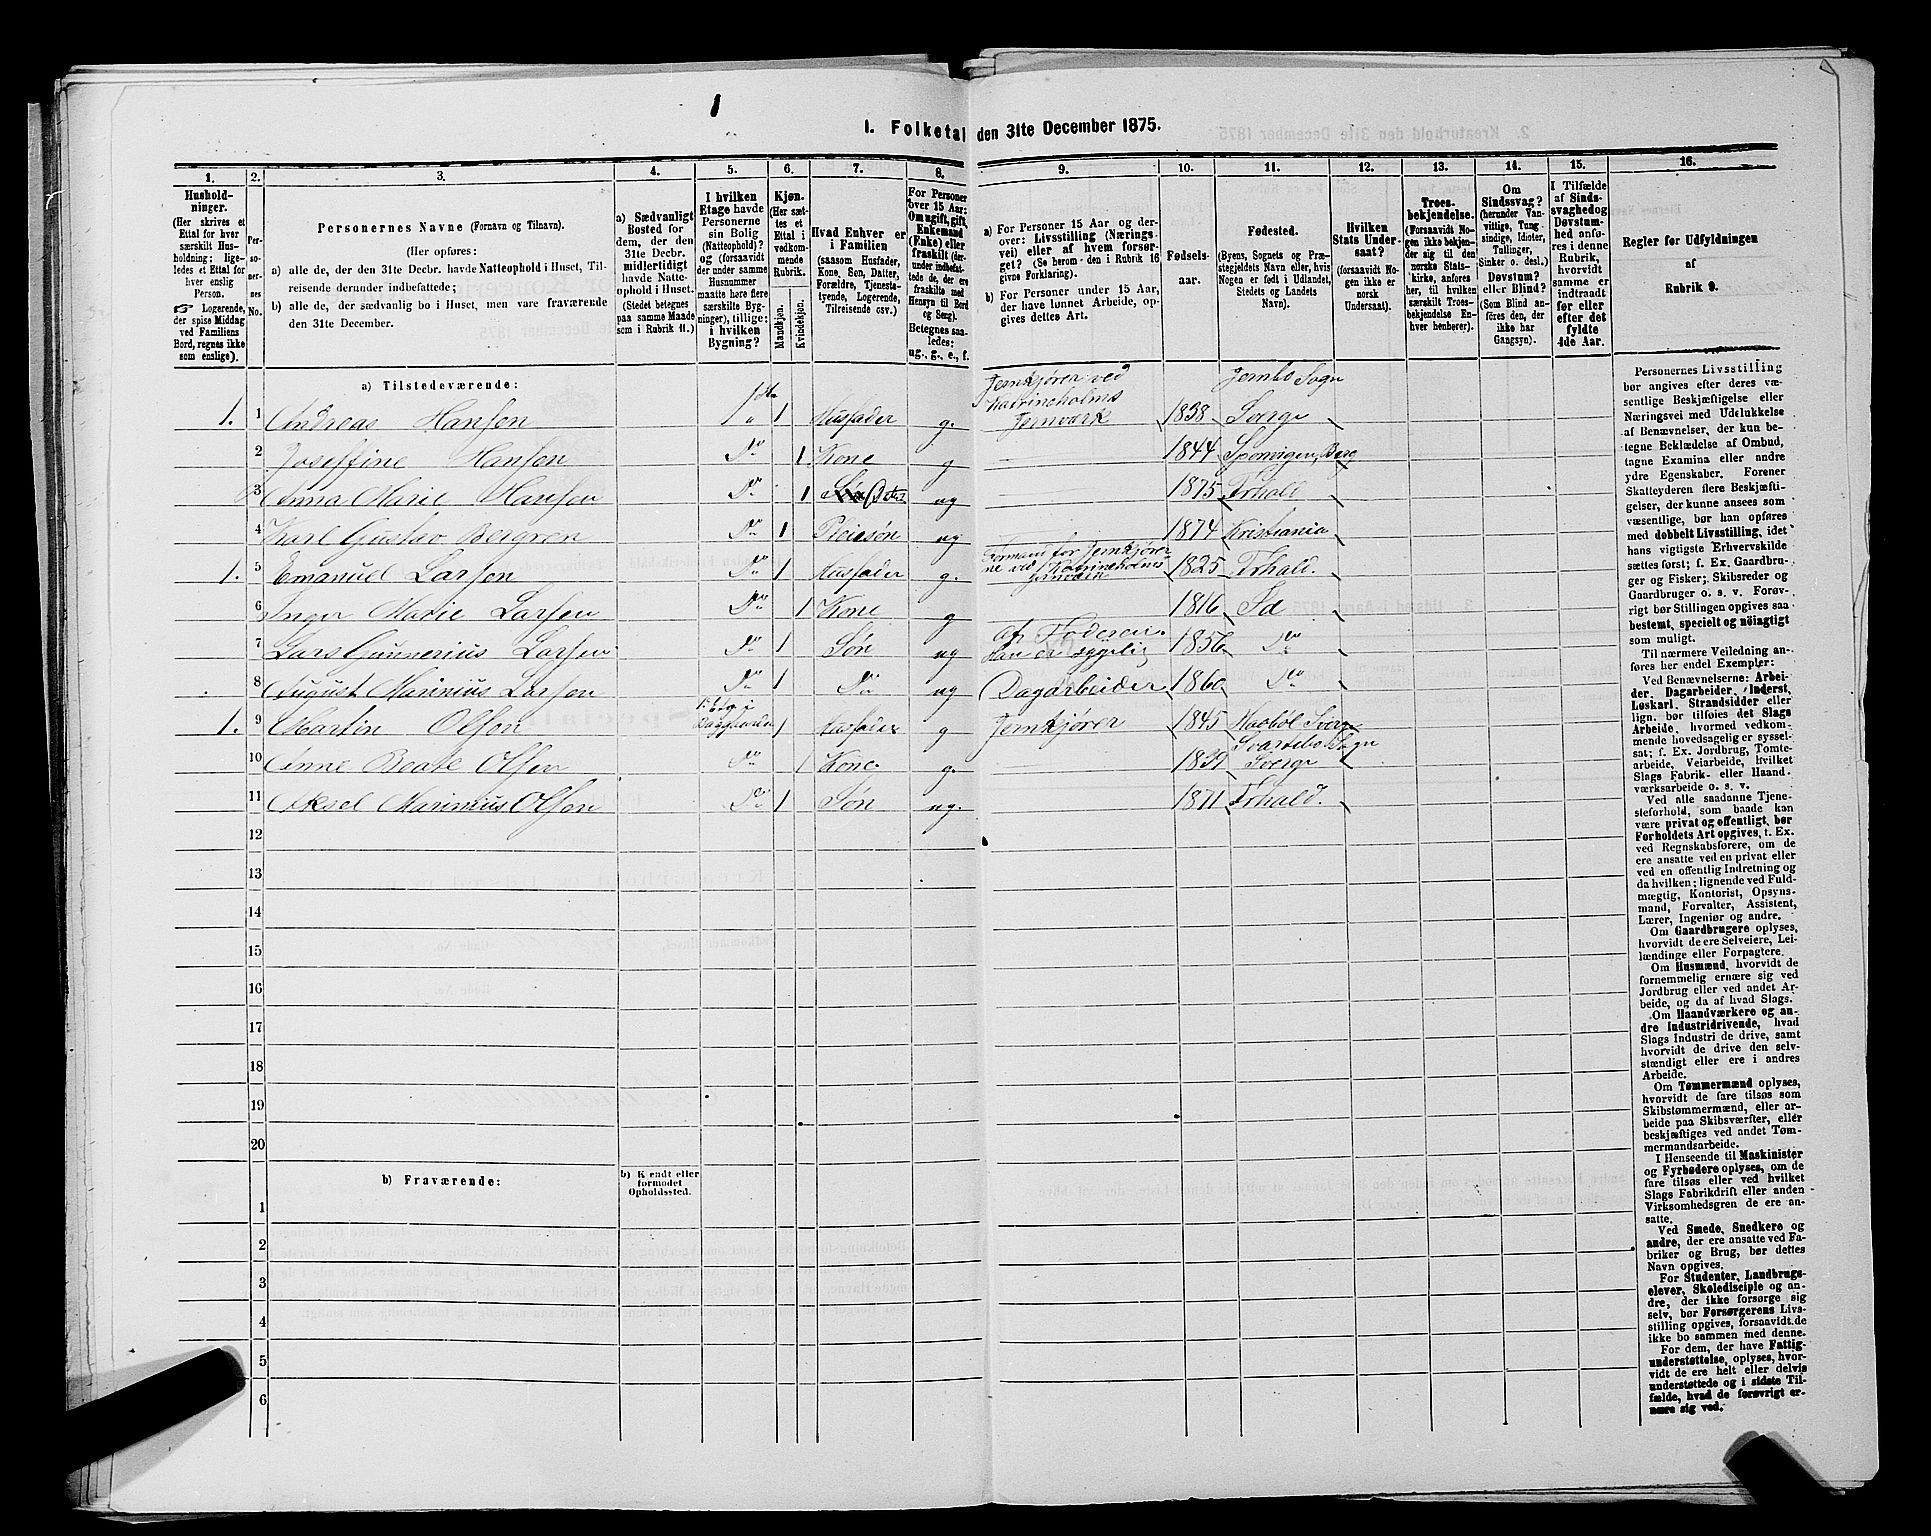 1
1. Folketal den 31te December 1875.
1. 2. 3. 4. 5. 6. 7. 8. 9. 10. 11. 12. 13. 14. 15. 16.
Husholdninger.
(Her skrives et
Ettal for hver
særskilt Hus-
holdning; lige-
ledes et Ettal for
hver enslig
Person.
☞ Logerende,
der spise Middag
ved Familiens
Bord, regnes ikke
som enslige).
Per-
soner-
nes
No.
Personernes Navne (Fornavn og Tilnavn).
(Her opføres:
a) alle de, der den 31te Decbr. havde Natteophold i Huset, Til-
reisende derunder indbefattede;
b) alle de, der sædvanlig bo i Huset, men vare fraværende
den 31te December.
a) Sædvanligt
Bosted for
dem, der den
31te Decbr.
midlertidigt
havde Natte-
ophold i Huset.
(Stedet betegnes
paa samme Maade
som i Rubrik 11.)
I hvilken
Etage havde
Personerne
sin Bolig
(Natteophold)?
og (forsaavidt
der under samme
Husnummer
maatte høre flere
særskilte Byg-
ninger), tillige:
i hvilken
Bygning?
Kjøn.
(Her sæt-
tes et
Ettal i
vedkom-
mende
Rubrik.
Mandkjøn.
Kvindekjøn.
Hvad Enhver er
i Familien
(saasom Husfader,
Kone, Søn, Datter,
Forældre, Tjeneste-
tyende, Logerende,
Tilreisende osv.)
For Personer
over 15 Aar:
Om ugift, gift,
Enkemand
(Enke) eller
fraskilt (der-
under indbefat-
tede de, der ere
fraskilte med
Hensyn til Bord
og Seng).
Betegnes saa-
ledes:
ug., g., e., f.
a) For Personer 15 Aar og der-
over: Livsstilling (Nærings-
vei) eller af hvem forsør-
get? (Se herom den i Rubrik 16
givne Forklaring).
b) For Personer under 15 Aar,
der have lønnet Arbeide, op-
gives dettes Art.
Fødsels-
aar.
Fødested.
(Byens, Sognets og Præ-
stegjeldets Navn eller, hvis
Nogen er født i Udlandet,
Stedets og Landets
Navn).
Hvilken
Stats Under-
saat?
(forsaavidt No-
gen ikke er
norsk
Undersaat).
Troes-
bekjendelse.
(Forsaavidt No-
gen ikke bekjen-
der sig til den
norske Stats-
kirke, anføres
her, til hvilken
særskilt Troes-
bekjendelse En-
hver henhører).
Om
Sindssvag?
(herunder Van-
vittige, Tung-
sindige, Idioter,
Tullinger,
Sinker o. desl.).
Døvstum?
eller Blind?
(Som Blind an-
föres den, der
ikke har
Gangsyn).
I Tilfælde
af Sinds-
svaghed og
Døvstum-
hed anfø-
res i denne
Rubrik,
hvorvidt
samme er
indtraadt
før eller
efter det
fyldte
4de Aar.
Regler for Udfyldningen
af
Rubrik 9.
a) Tilstedeværende:
1. 1 Andreas Hansen 1 1 Husfader g. Jernkjörer ved Katrineholms Jernværk 1838 Jernbo Sogn Sverge
2 Joseffine Hansen Do 1 Kone g 1844 Sponvigen, Berg
3 Anna Marie Hansen Do 1 Datter ug 1875 Frhald
4 Karl Gustav Bergren Do 1 Pleiesøn ug 1874 Kristiania
1. 5 Emanuel Larsen Do 1 Husfader g. Formand for Jernkjörerne ved Katrineholms Jernværk 1825 Frhald.
6 Inger Marie Larsen Do 1 Kone g 1816 Id
7 Lars Gunnerius Larsen Do 1 Søn ug af Faderen. Han er sygelig 1856 Do
8 August Marinius Larsen Do 1 Do ug Dagarbeider 1860 Do
1. 9 Martin Olsen 1 Etg i Baggaarden 1 Husfader g Jernkjörer 1845 Sverge
10 Anne Beate Olsen Do 1 Kone g. 1839 Sogn Sverge
11 Aksel Marinius Olsen Do 1 Søn ug. 1871 Frhald.
12
13
14
15
16
17
18
19
20
b) Fraværende:
b) Kendt eller
formodet
Opholdssted.
1
2
3
4
5
6
Personernes Livsstilling
bør angives efter deres væ-
sentlige Beskjæftigelse eller
Næringsvei med Udelukkelse
af Benævnelser, der kun be-
tegne Beklædelse af Ombud,
tagne Examina eller andre
ydre Egenskaber. Forener
Skatteyderen flere Beskjæfti-
gelser, der kunne ansees som
væsentlige, bør han opføres
med dobbelt Livsstilling, idet
hans vigtigste Erhvervskilde
sættes først; f. Ex. Gaardbru-
ger og Fisker; Skibsreder og
Gaardbruger o. s. v. Forøv-
rigt bør Stillingen opgives saa
bestemt, specielt og nöiagtigt
som muligt.
Til nærmere Veiledning an-
føres her endel Exempler:
Ved Benævnelserne: Arbei-
der, Dagarbeider, Inderst,
Løskarl, Strandsidder eller
lign. bør tilføies det Slags
Arbeide, hvormed vedkom-
mende hovedsagelig er syssel-
sat; f. Ex. Jordbrug, Tomte-
arbeide, Veiarbeide, hvilket
Slags Fabrik- eller Haand-
værksarbeide o. s. v.
Ved alle saadanne Tjene-
steforhold, som baade kan
være privat og offentligt, bør
Forholdets Art opgives, t. Ex.
ved Regnskabsførere, om de
ere ansatte ved en privat eller
ved en offentlig Indretning og
da hvilken; lignende ved Fuld-
mægtig, Kontorist, Opsyns-
mand, Forvalter, Assistent,
Lærer, Ingeniør og andre.
Om Gaardbrugere oplyses,
hvorvidt de ere Selveiere, Lei-
lændinge eller Forpagtere.
Om Husmænd, hvorvidt de
fornemmelig ernære sig ved
Jordbrug eller ved andet Ar-
beide, og da af hvad Slags.
Om Haandværkere og an-
dre Industridrivende, hvad
Slags Industri de drive, samt
hvorvidt de drive den selv-
stændigt eller ere i andres
Arbeide.
Om Tømmermænd oplyses,
hvorvidt de fare tilsøs som
Skibstømmermænd, eller ar-
beide paa Skibsværfter, eller
beskjæftiges ved andet Tøm-
mermandsarbeide.
I Henseende til Maskinister
og Fyrbødere oplyses, om de
fare tilsøs eller ved hvilket
Slags Fabrikdrift eller anden
Virksomhedsgren de ere an-
satte.
Ved Smede, Snedkere og
andre, der ere ansatte ved Fa-
briker og Brug, bør dettes
Navn opgives.
For Studenter, Landbrugs-
elever, Skoledisciple og an-
dre, der ikke forsørge sig
selv, bør Forsørgerens Livs-
stilling opgives, forsaavidt de
ikke bo sammen med denne.
For dem, der have Fattig-
understøttelse, oplyses, hvor-
vidt de ere helt eller delvis
understøttede og i sidste Til-
fælde, hvad de forøvrigt er-
nære sig ved.